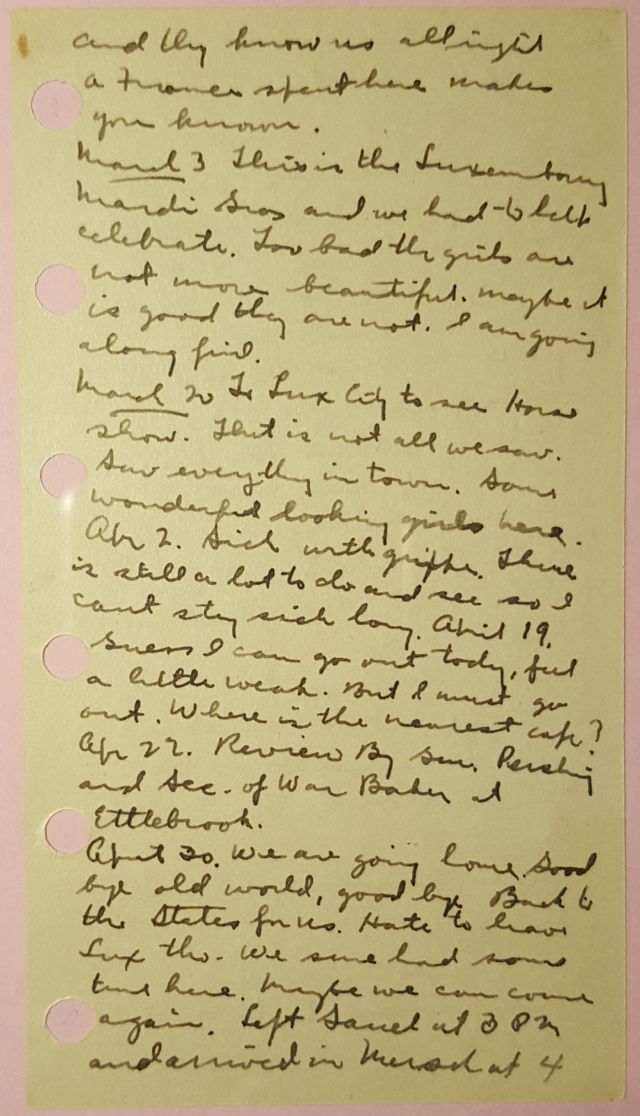 and they know us allright
a Francs spent here makes
you known.
March 3 This is the Luxembourg
Mardi Gras and we had to help
celebrate. Too bad the girls are
not more beautiful. Maybe it
is good they are not. I am going
along fine.
March 20 To Lux City to see Horse
show. That is not all we saw.
Saw everything in town. Some
wonderful looking girls here.
Apr 2. Sick with grippe. There
is still a lot to do and see so I
cant stay sick long. April 19.
Guess I can go out today, feel
a little weak. But I must go
out. Where is the nearest cafe?
Apr 22. Review By Gen. Pershing
and Sec. of War Baker at
Ettlebrook.
April 30. We are going home. Good
bye old world, good bye Back to
the States for us. Hate to leave
Lux tho. We sure had some
time here. Maybe we can come
again. Left at 3 PM
and arrived in Mersch at 4